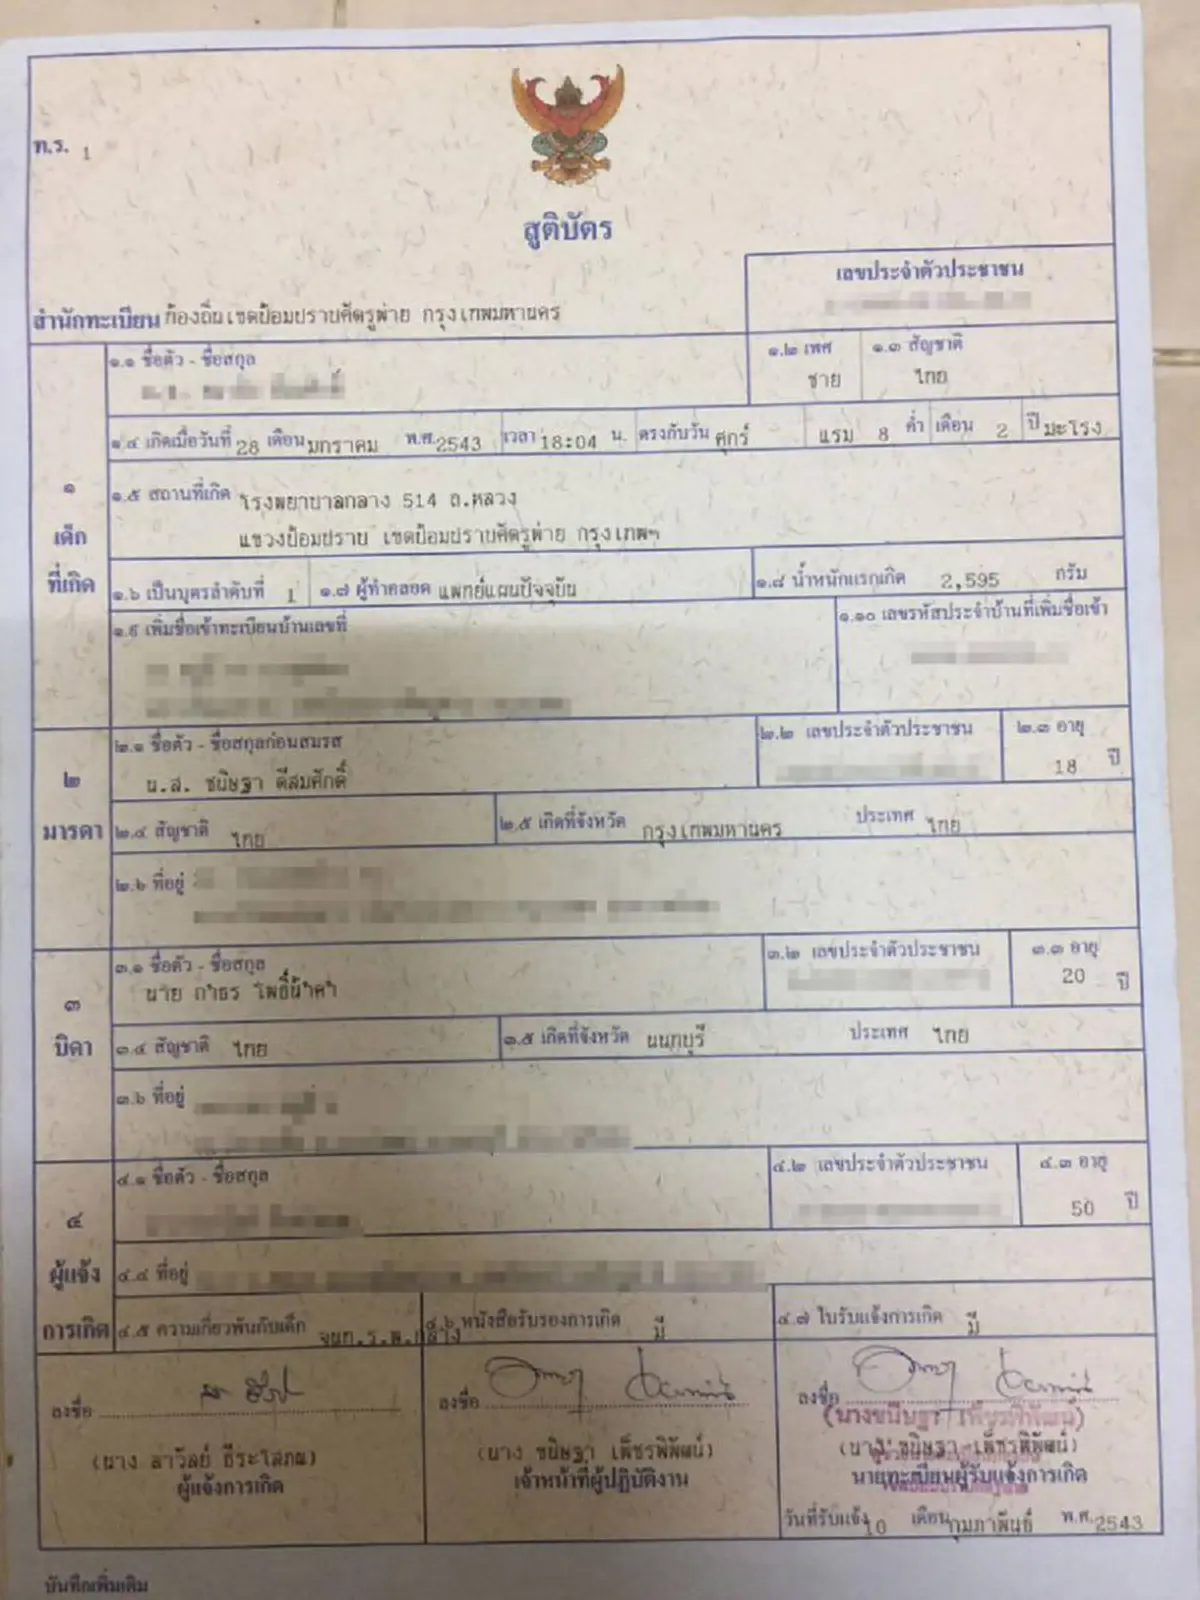 ท.ร. 1
สูติบัตร
เลขประจำตัวประชาชน
สำนักทะเบียน ท้องถิ่นเขตป้อมปราบศัตรูพ่าย กรุงเทพมหานคร
๑.๑ ชื่อตัว - ชื่อสกุล
๑.๒ เพศ ชาย
๑.๓ สัญชาติ ไทย
๑.๔ เกิดเมื่อวันที่ 28 เดือน มกราคม พ.ศ. 2543 เวลา 18:04 น. ตรงกับวัน ศุกร์ แรม 8 ค่ำ เดือน 2 ปี มะโรง
๑ เด็กที่เกิด
๑.๕ สถานที่เกิด โรงพยาบาลกลาง 514 ถ.หลวง
แขวงป้อมปราบ เขตป้อมปราบศัตรูพ่าย กรุงเทพฯ
๑.๖ เป็นบุตรลำดับที่ 1 ๑.๗ ผู้ทำคลอด แพทย์แผนปัจจุบัน ๑.๘ น้ำหนักแรกเกิด 2,595 กรัม
๑.๙ เพิ่มชื่อเข้าทะเบียนบ้านเลขที่
๑.๑๐ เลขรหัสประจำบ้านที่เพิ่มชื่อเข้า
๒ มารดา
๒.๑ ชื่อตัว - ชื่อสกุลก่อนสมรส
น.ส. ชนิษฐา ดีสมศักดิ์
๒.๒ เลขประจำตัวประชาชน
๒.๓ อายุ 18 ปี
๒.๔ สัญชาติ ไทย ๒.๕ เกิดที่จังหวัด กรุงเทพมหานคร ประเทศ ไทย
๒.๖ ที่อยู่
๓ บิดา
๓.๑ ชื่อตัว - ชื่อสกุล
นาย กำธร โพธิ์น้ำคำ
๓.๒ เลขประจำตัวประชาชน
๓.๓ อายุ 20 ปี
๓.๔ สัญชาติ ไทย ๓.๕ เกิดที่จังหวัด นนทบุรี ประเทศ ไทย
๓.๖ ที่อยู่
๔ ผู้แจ้งการเกิด
๔.๑ ชื่อตัว - ชื่อสกุล
๔.๒ เลขประจำตัวประชาชน
๔.๓ อายุ 50 ปี
๔.๔ ที่อยู่
๔.๕ ความเกี่ยวพันกับเด็ก จนท.ร.พ.กลาง ๔.๖ หนังสือรับรองการเกิด มี ๔.๗ ใบรับแจ้งการเกิด มี
ลงชื่อ
(นาง ลาวัลย์ ธีระโสภณ)
ผู้แจ้งการเกิด
ลงชื่อ
(นาง ขนิษฐา เพ็ชรพิพัฒน์)
เจ้าหน้าที่ผู้ปฏิบัติงาน
ลงชื่อ
(นางขนิษฐา เพ็ชรพิพัฒน์)
(นาง ขนิษฐา เพ็ชรพิพัฒน์)
นายทะเบียนผู้รับแจ้งการเกิด
วันที่รับแจ้ง 10 เดือน กุมภาพันธ์ พ.ศ. 2543
บันทึกเพิ่มเติม